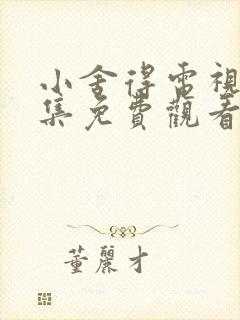 小舍得電視
集免費觀看
董麗才